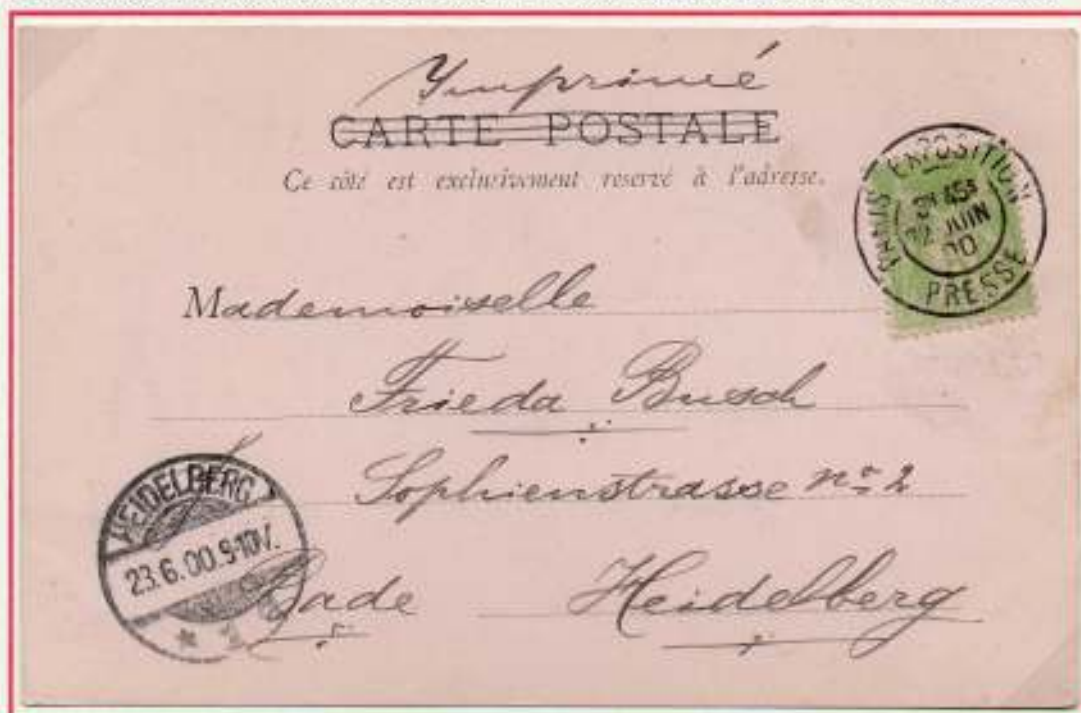 Imprimé
CARTE POSTALE
Ce côté est exclusivement reservé à l'adresse.
PARIS EXPOSITION
JUIN
00
PRESSE
Mademoiselle
Frieda Busch
Sophienstrasse no 2
HEIDELBERG
23.6.00.9-10V.
Bade Heidelberg